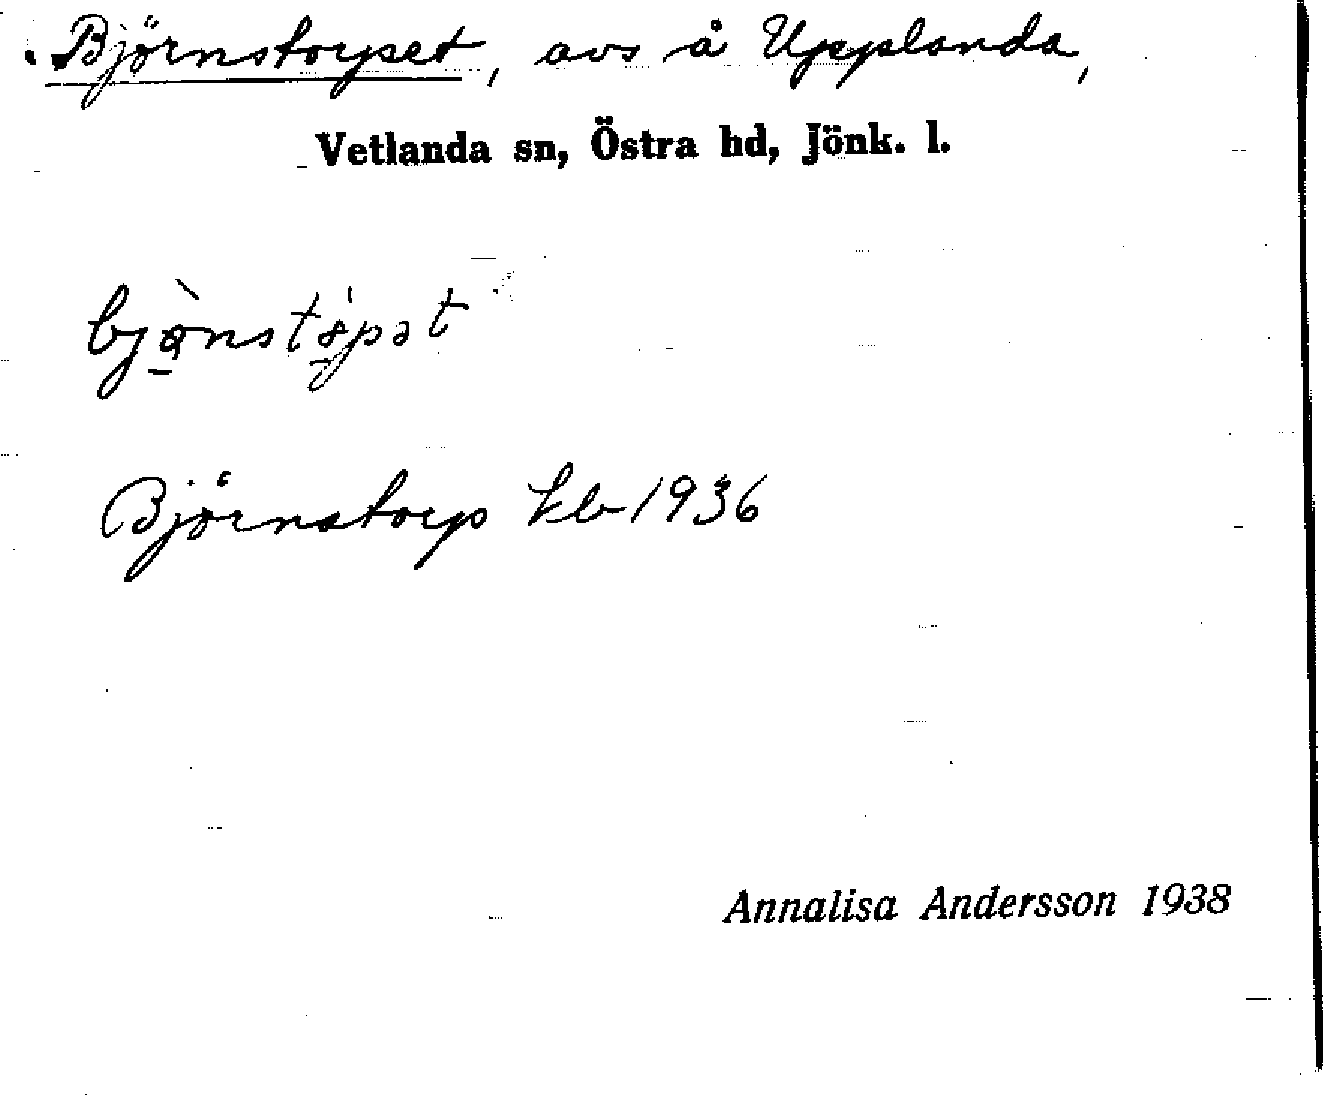 Björnstorpet, avs å Upplanda,
Vetlanda sn, Östra hd, Jönk. l.
Björnstorp kb 1936
Annalisa Andersson 1938